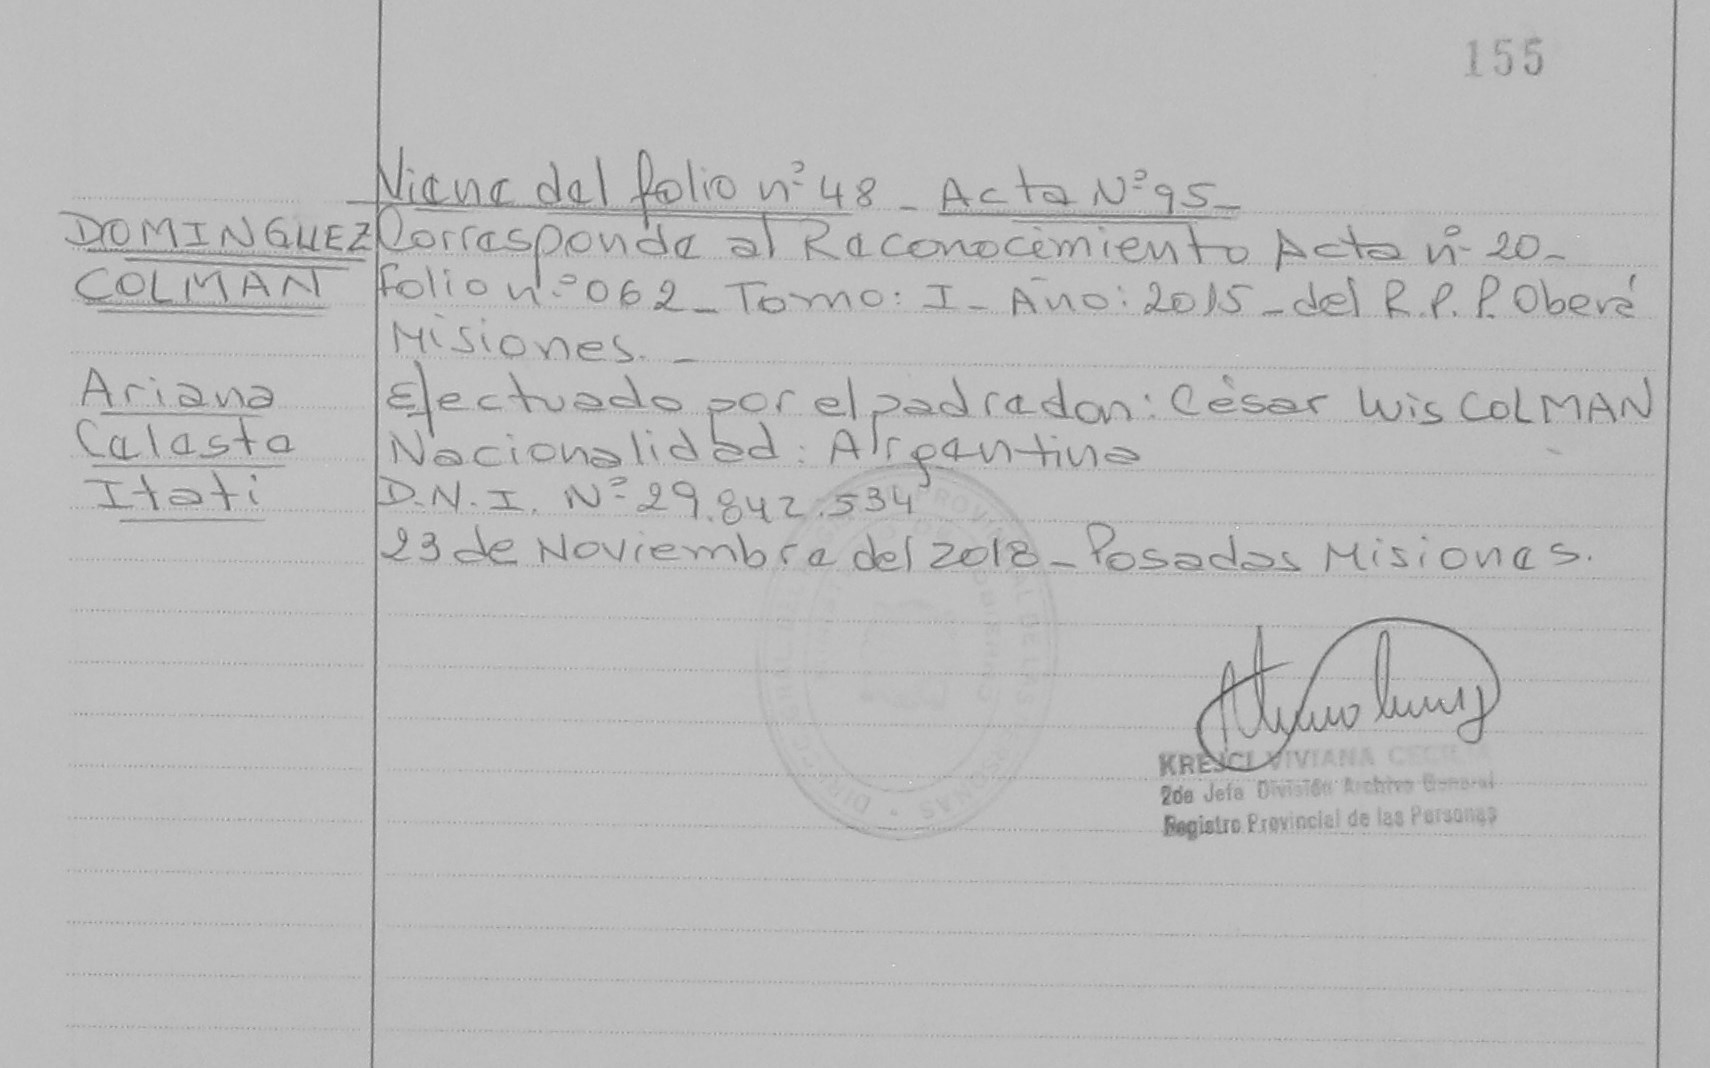 155
Viene del folio nº 48 - Acta Nº 95 -
DOMINGUEZ Corresponde al Reconocimiento Acta nº 20 -
COLMAN folio nº 062 - Tomo: I - Año: 2015 - del R.P.P. Oberá
Misiones. -
Ariana Efectuado por el padre don: César Luis COLMAN
Celeste Nacionalidad: Argentina
Itati D.N.I. Nº 29.842.534
23 de Noviembre del 2018 - Posadas Misiones.
KREJCI VIVIANA CECILIA
2da Jefa División Archivo General
Registro Provincial de las Personas